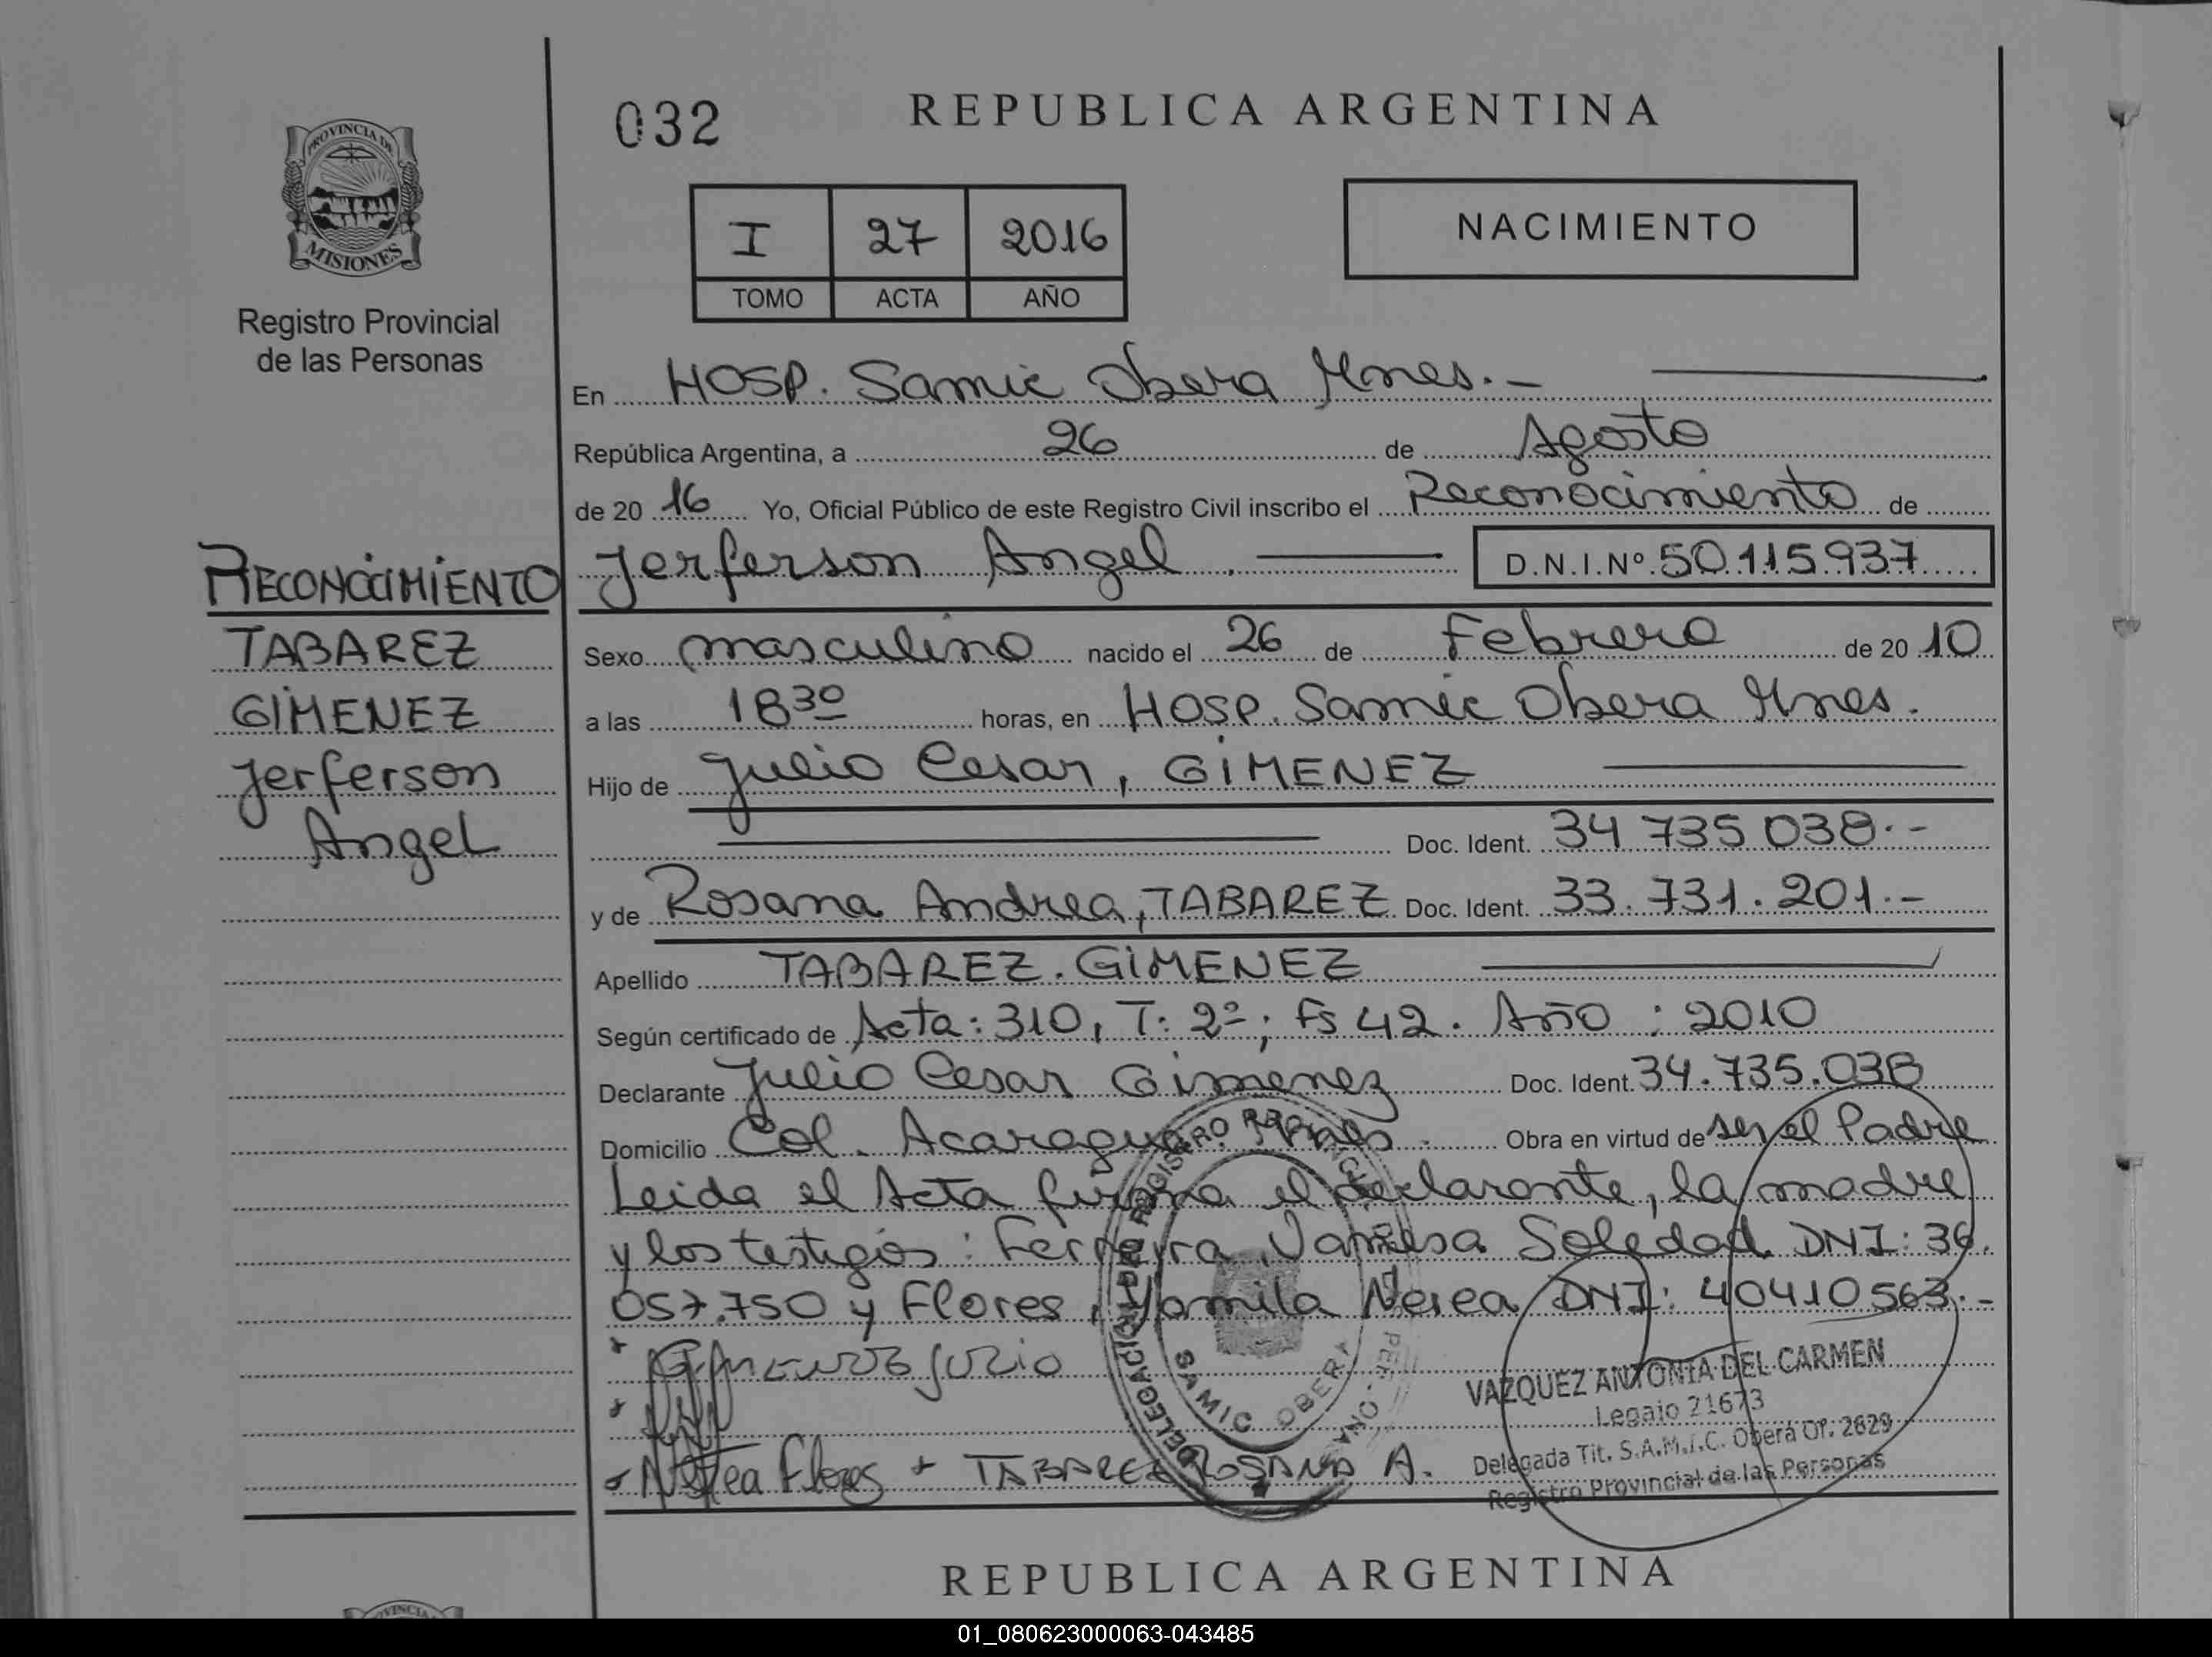 032
REPUBLICA ARGENTINA
PROVINCIA DE
MISIONES
Registro Provincial
de las Personas
I 27 2016
TOMO ACTA AÑO
NACIMIENTO
En HOSP. Samic Obera Mnes.-
República Argentina, a 26 de Agosto
de 20 16 Yo, Oficial Público de este Registro Civil inscribo el Reconocimiento de
Jerferson Angel. D.N.I.Nº 50.115.937
RECONOCIMIENTO
TABAREZ
GIMENEZ
Jerferson
Angel
Sexo masculino nacido el 26 de Febrero de 20 10
a las 18 30 horas, en Hosp. Samic Obera Mnes.
Hijo de Julio Cesar, GIMENEZ
Doc. Ident. 34 735 038.-
y de Rosana Andrea, TABAREZ Doc. Ident. 33.731.201.-
Apellido TABAREZ. GIMENEZ
Según certificado de Acta: 310, T: 2º; Fs 42. Año : 2010
Declarante Julio Cesar Gimenez Doc. Ident. 34.735.038
Domicilio Col. Acaragua Obra en virtud de ser el Padre
Leida el Acta firma el declarante, la madre
y los testigos: Ferreyra Vanesa Soledad DNI: 36.
057.750 y Flores, Yamila Nerea DNI: 40410563.-
Gimenez Julio
Nerea Flores + TABAREZ ROSANA A.
DELEGACION
SAMIC OBERA
VAZQUEZ ANTONIA DEL CARMEN
Legajo 21673
Delegada Tit. S.A.M.I.C. Oberá Of. 2629
Registro Provincial de las Personas
REPUBLICA ARGENTINA
01_080623000063-043485